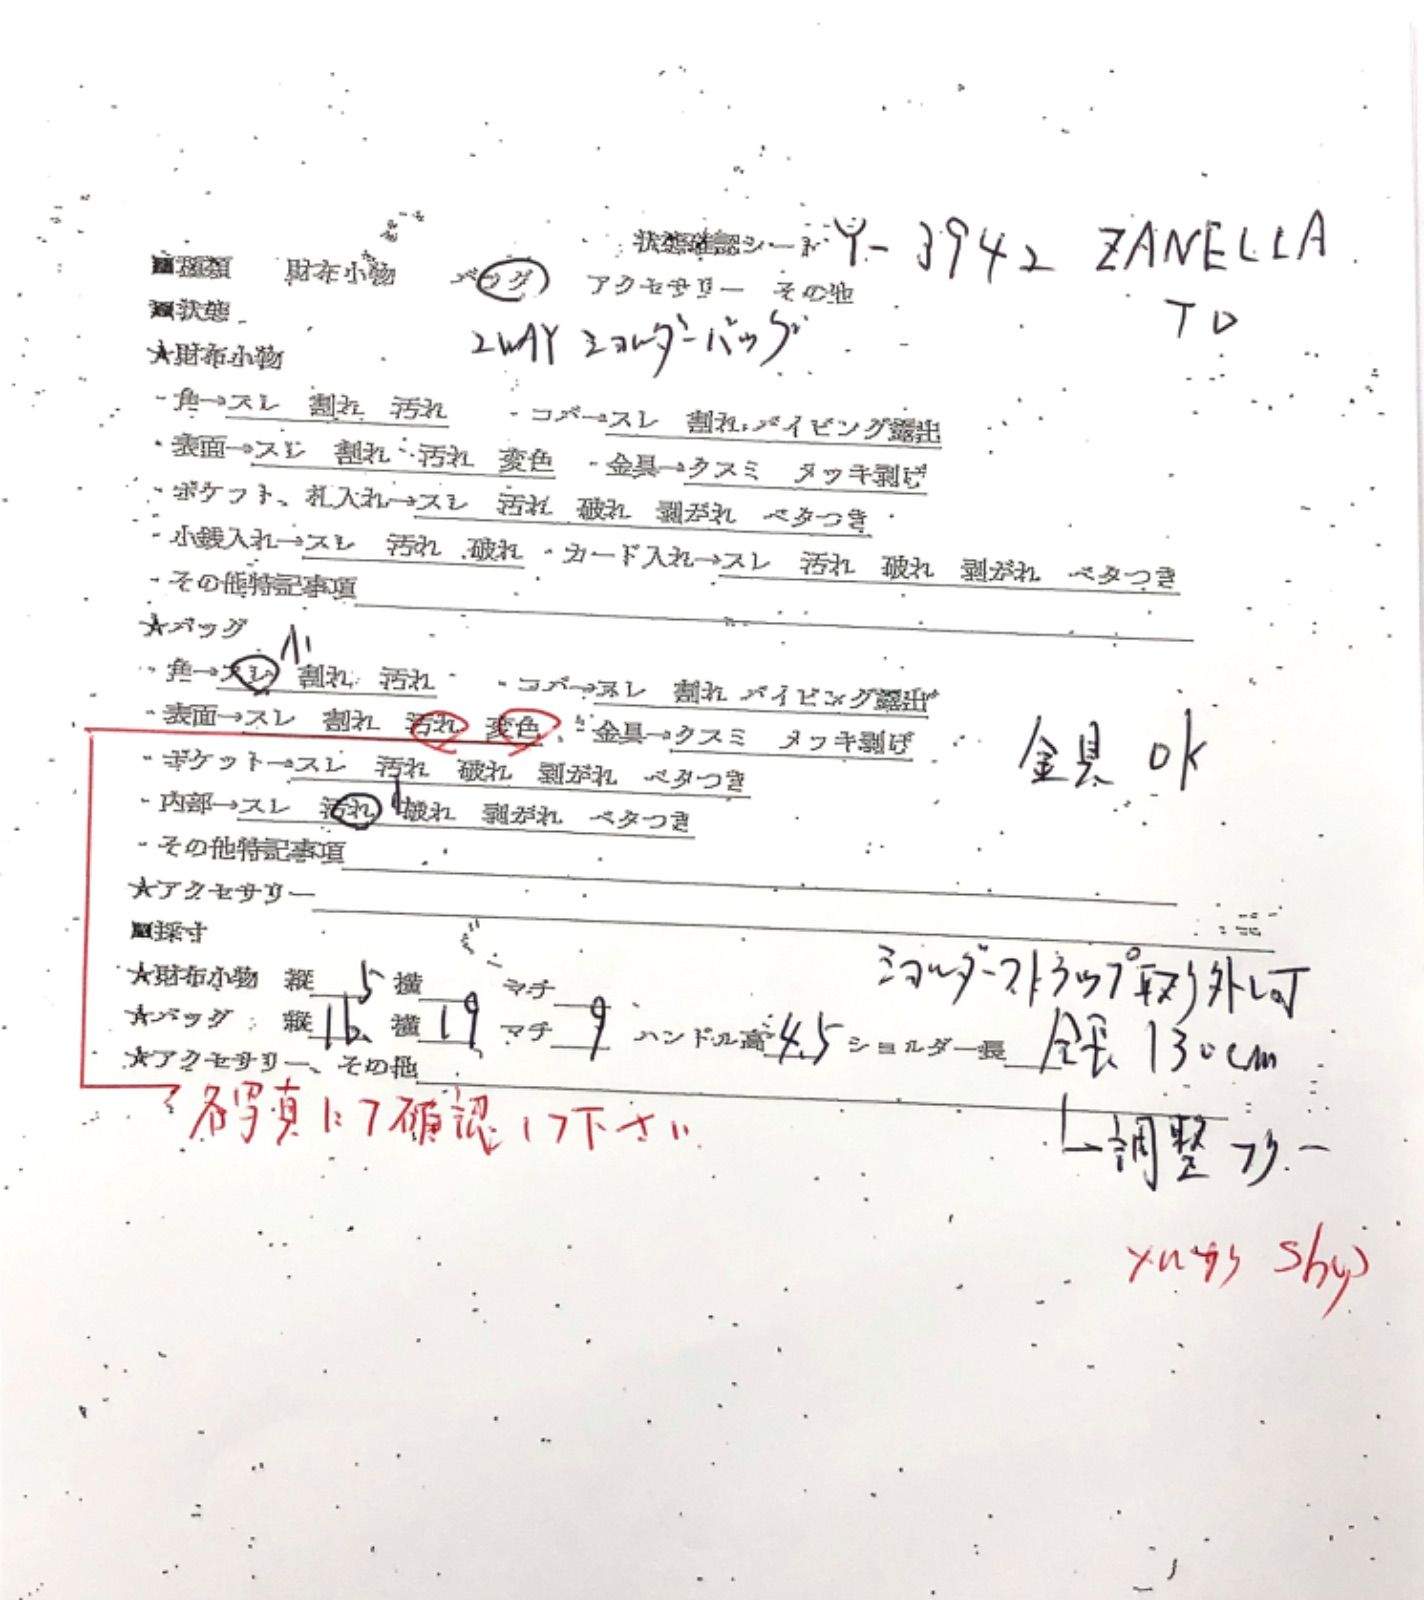 状態確認シート Y-3942 ZANELLA
■種類 財布小物 バッグ アクセサリー その他
TD
■状態
2WAY ショルダーバッグ
★財布小物
・角→スレ 割れ 汚れ ・コバ→スレ 割れ パイピング露出
・表面→スレ 割れ 汚れ 変色 ・金具→クスミ メッキ剥げ
・ポケット、札入れ→スレ 汚れ 破れ 剥がれ ベタつき
・小銭入れ→スレ 汚れ 破れ ・カード入れ→スレ 汚れ 破れ 剥がれ ベタつき
・その他特記事項
★バッグ
小
・角→スレ 割れ 汚れ ・コバ→スレ 割れ パイピング露出
・表面→スレ 割れ 汚れ 変色 ・金具→クスミ メッキ剥げ
金具 OK
・ポケット→スレ 汚れ 破れ 剥がれ ベタつき
・内部→スレ 汚れ 破れ 剥がれ ベタつき
・その他特記事項
★アクセサリー
■採寸
ショルダーストラップ取り外し可
★財布小物 縦 横 マチ
★バッグ 縦 16.5 横 19 マチ 9 ハンドル高 4.5 ショルダー長 全長 130cm
★アクセサリー、その他
各写真にて確認して下さい
→調整フリー